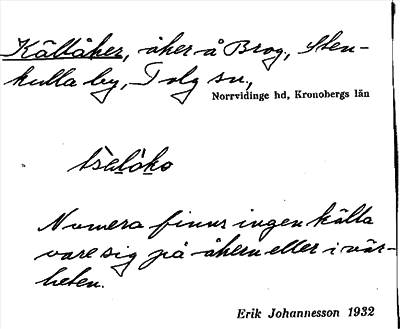 Källåker, åker å Brog, Sten-
kulla by, Tolg sn.,
Norrvidinge hd, Kronobergs län
Numera finns ingen källa
vare sig på åkern eller i när-
heten.
Erik Johannesson 1932